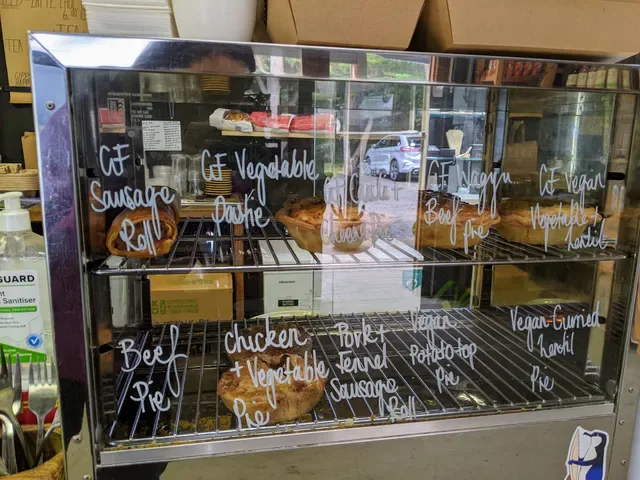 TEA
GF
Sausage
Roll
GF Vegetable
Pastie
GF Vegan
Vegetable +
Lentil
Beef
Pie
Beef
Pie
chicken
+ Vegetable
Pie
Pork +
Fennel
Sausage
Roll
Vegan
Potato top
Pie
Vegan Curried
Lentil
Pie
GUARD
Sanitiser